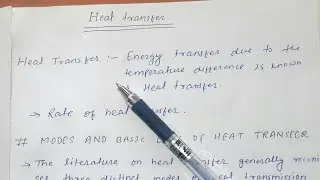 Heat transfer
Heat Transfer :- Energy transfer due to the
temperature difference is known
Heat transfer.
→ Rate of heat transfer.
# MODES AND BASIC OF HEAT TRANSFER
→ The literature on heat transfer generally recogni
ses three distinct modes of heat transmission